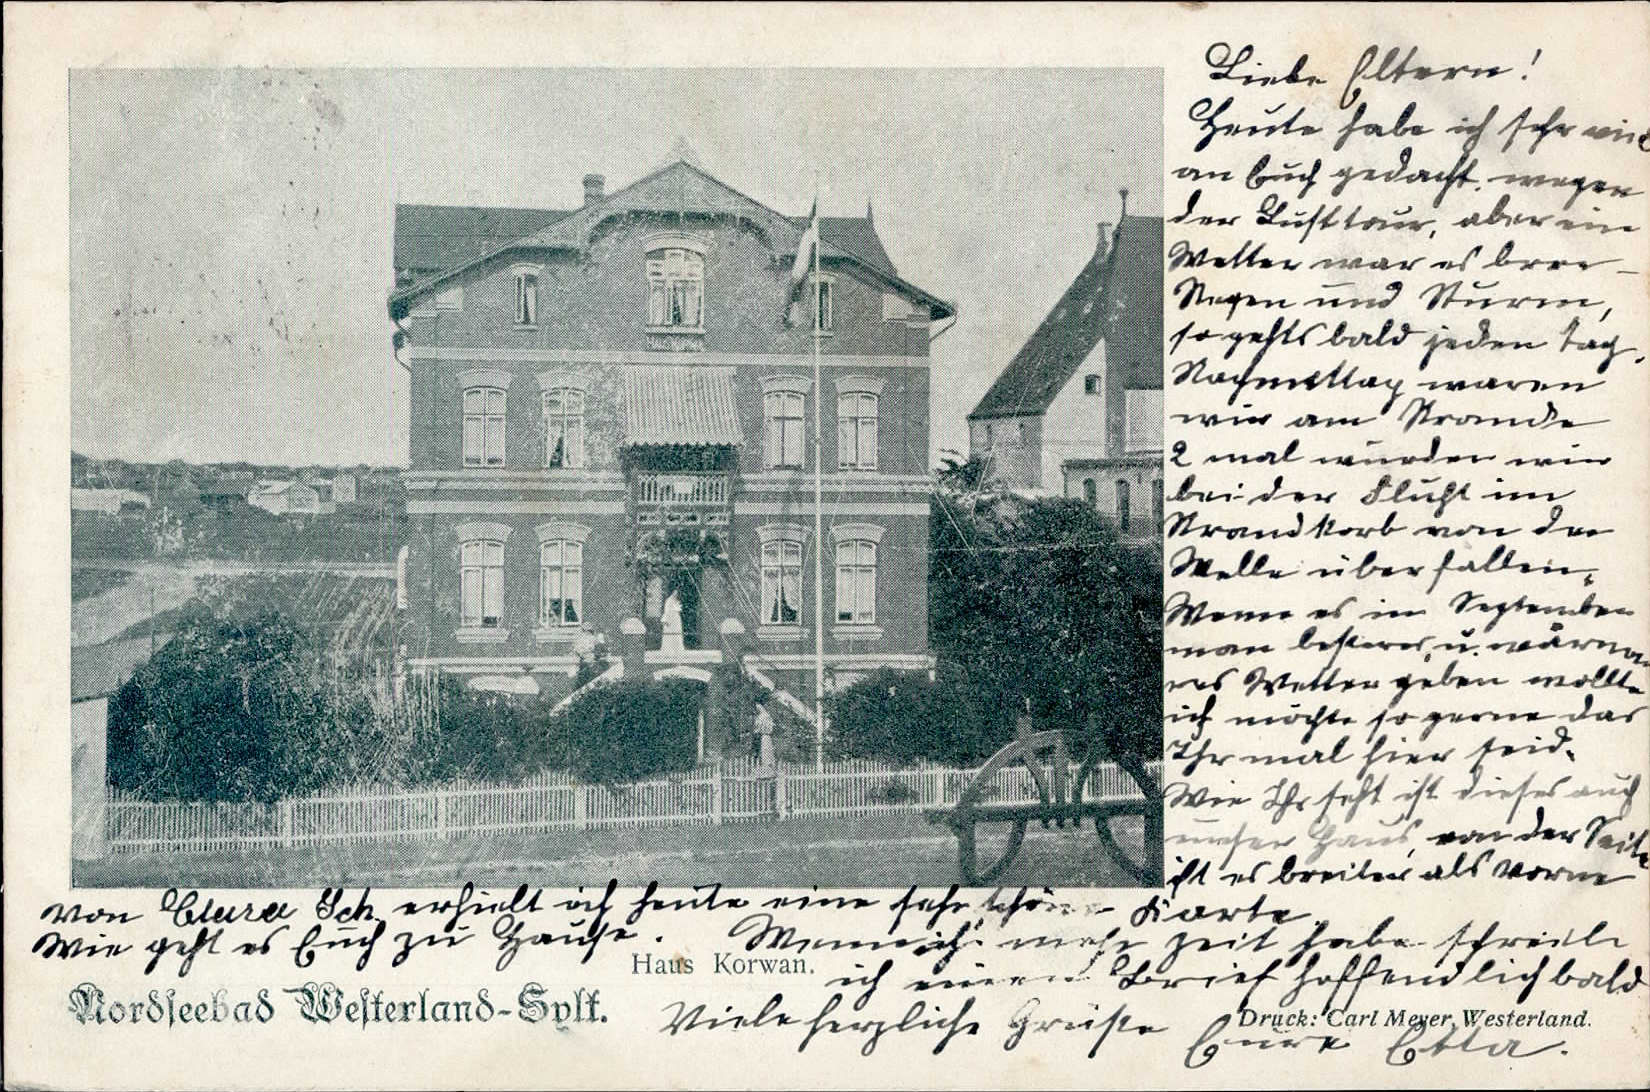 Liebe Eltern!
Heute habe ich sehr viel
an Euch gedacht. wegen
der Lusttour, aber ein
Wetter war es
Regen und Sturm,
so gehts bald jeden Tag.
Nachmittag waren
wir am Strande
2 mal wurden wir
bei der Flucht im
Strandkorb von der
Welle überfallen.
Wenn es im September
man besseres u. wärme-
res Wetter geben wollte
ich möchte so gerne das
Ihr mal hier seid.
Wie Ihr seht ist dieses auch
unser Haus, von der Seite
ist es breiter als vorne
von Clara Sch. erhielt ich heute eine sehr schöne Karte.
Wie geht es Euch zu Hause. Wenn ich mehr Zeit habe schreibe
ich einen Brief hoffendlich bald
Haus Korwan.
Nordseebad Westerland-Sylt.
Viele herzliche Grüße
Druck: Carl Meyer, Westerland.
Eure Etta.